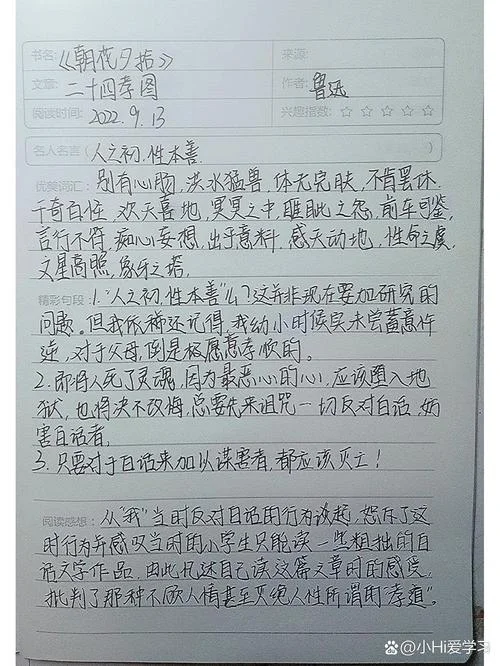 书名：《朝花夕拾》 来源：
文章：二十四孝图 作者：鲁迅
阅读时间：2022.9.13 兴趣指数：☆ ☆ ☆ ☆ ☆
名人名言（人之初,性本善.
优美词汇：别有心肠,洪水猛兽,体无完肤,不肯罢休.
千奇百怪,欢天喜地,冥冥之中,睚眦之怨,前车可鉴,
言行不符,痴心妄想,出乎意料,感天动地,性命之虞,
文星高照,象牙之塔,
精彩句段：1."人之初,性本善"么？这并非现在要加研究的
问题。但我依稀还记得,我幼小时候实未尝蓄意忤
逆,对于父母,倒是极愿意孝顺的。
2.即将人死了灵魂,因为最恶心的心,应该堕入地
狱,也将决不改悔,总要先来诅咒一切反对白话,妨
害白话者,
3.只要对于白话来加以谋害者,都应该灭亡！
阅读感想：从"我"当时反对白话的行为谈起,怒斥了这
时行为并感叹当时的小学生只能读一些粗拙的白
话文学作品,因此 述自己读这篇文章时的感受,
批判了那种不 人情甚至灭绝人性所谓的"孝道"。
小Hi爱学习